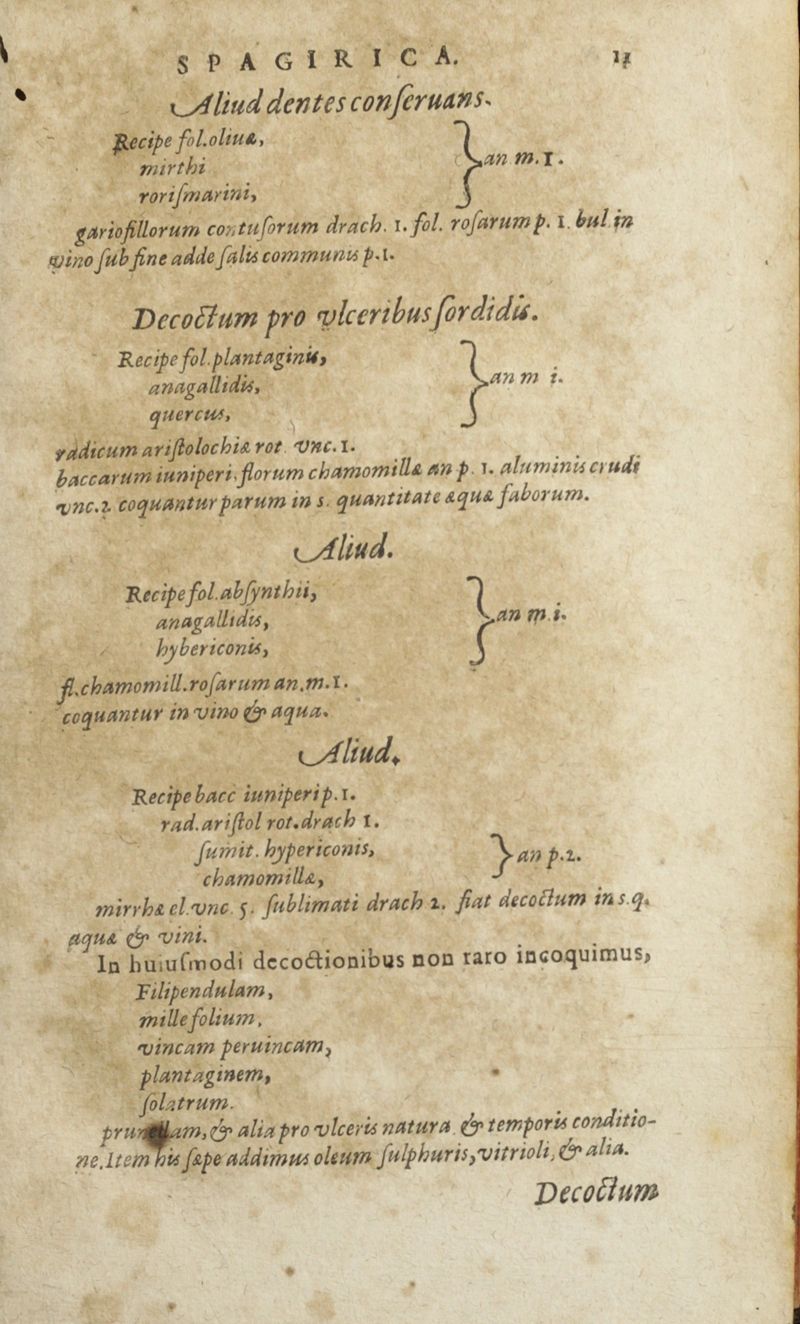 SPAGIRICA. 17
Aliud dentes conſeruans.
Recipe fol. oliuæ,
mirthi } an m. 1.
roriſmarini,
gariofillorum contuſorum drach. 1. fol. roſarum p. 1. bul in
vino ſub fine adde ſalis communis p. 1.
Decoctum pro vlceribus ſordidis.
Recipe fol. plantaginis,
anagallidis, } an m i.
quercus,
radicum ariſtolochiæ rot. vnc. 1.
baccarum iuniperi, florum chamomillæ an p. 1. aluminis crudi
vnc. 2 coquantur parum in s. quantitate aquæ faborum.
Aliud.
Recipe fol. abſynthii,
anagallidis, } an m. i.
hybericonis,
fl. chamomill. roſarum an. m. 1.
coquantur in vino & aqua.
Aliud.
Recipe bacc iuniperi p. 1.
rad. ariſtol rot. drach 1.
ſumit. hypericonis, } an p. 2.
chamomillæ,
mirrhæ el. vnc. 5. ſublimati drach 2. fiat decoctum in s. q.
aquæ & vini.
In huiuſmodi decoctionibus non raro incoquimus,
Filipendulam,
millefolium,
vincam peruincam,
plantaginem,
ſolatrum.
prunellam, & alia pro vlceris natura & temporis conditio-
ne. Item his ſæpe addimus oleum ſulphuris, vitrioli, & alia.
Decoctum